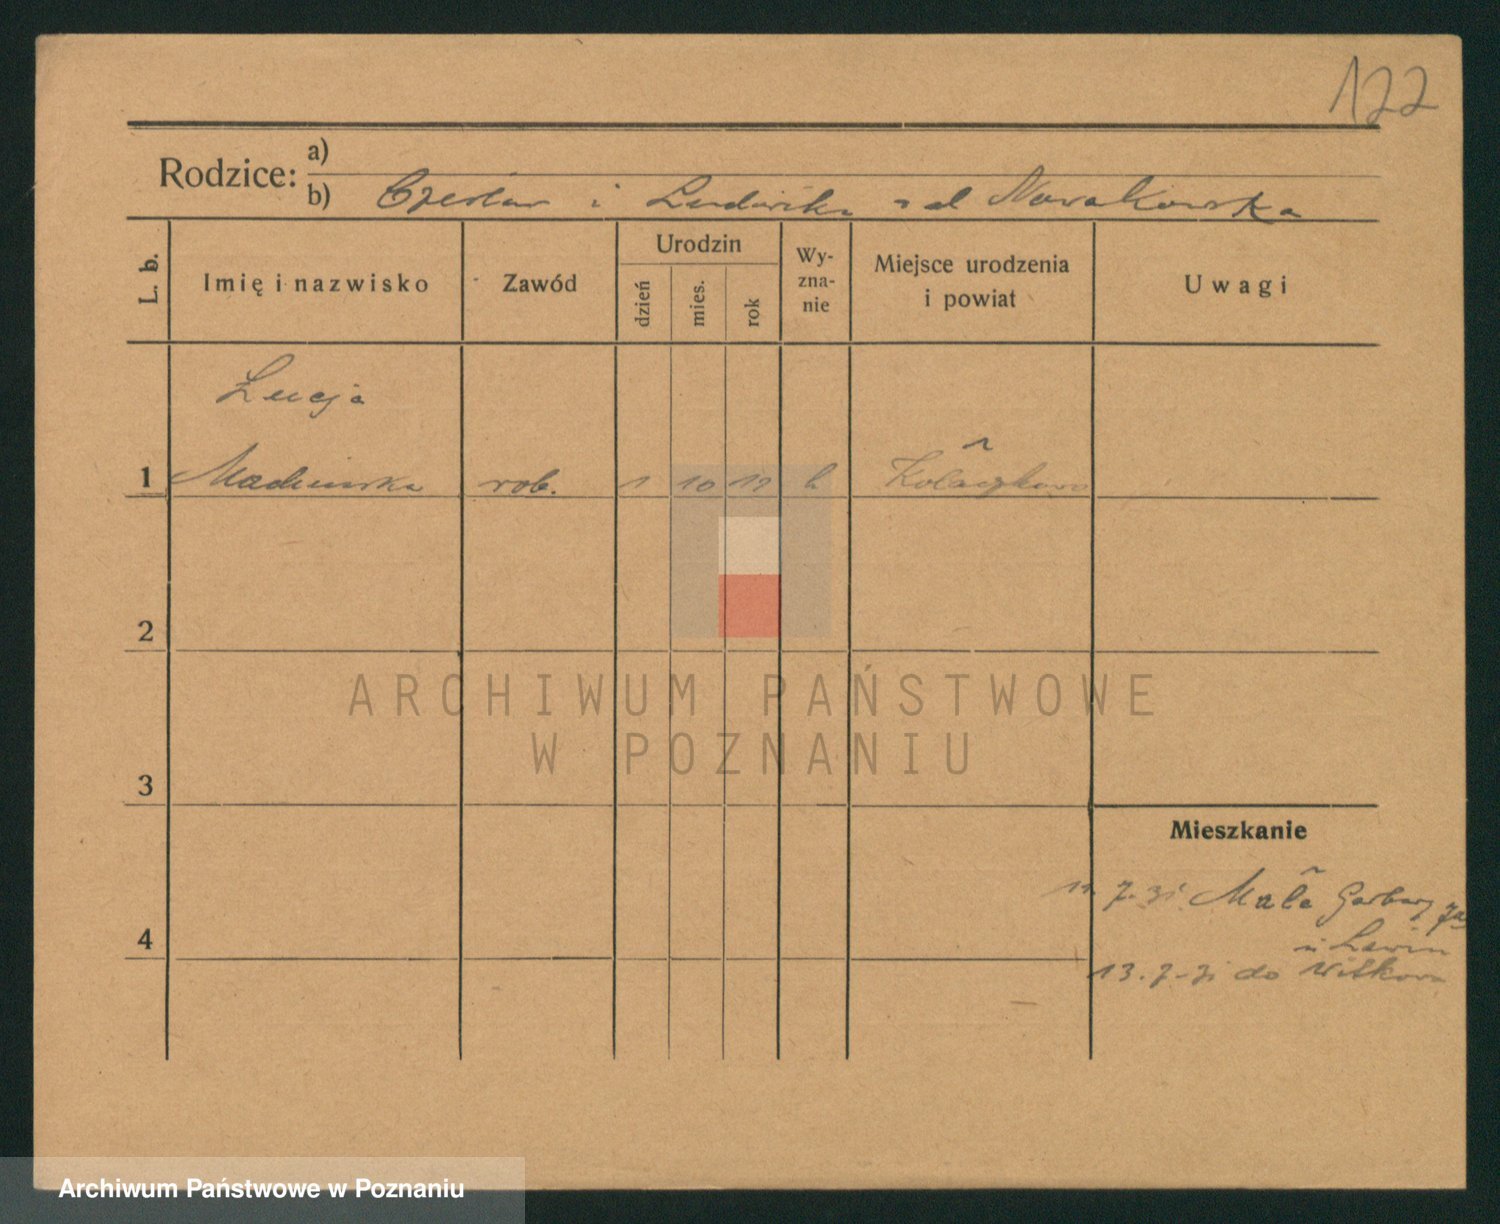 122
Rodzice: a)
b) Czesław i Ludwika z d Nowakowska
L. b.
Imię i nazwisko
Zawód
Urodzin
dzień
mies.
rok
Wy-
zna-
nie
Miejsce urodzenia
i powiat
Uwagi
Łucja
1 rob. 1 10 19 k Kołaczkowo
2
ARCHIWUM PAŃSTWOWE
W POZNANIU
3
Mieszkanie
11. 7. 31 Małe Garbary 7a
4
u Lewin
13. 7. 31 do Witkowa
Archiwum Państwowe w Poznaniu